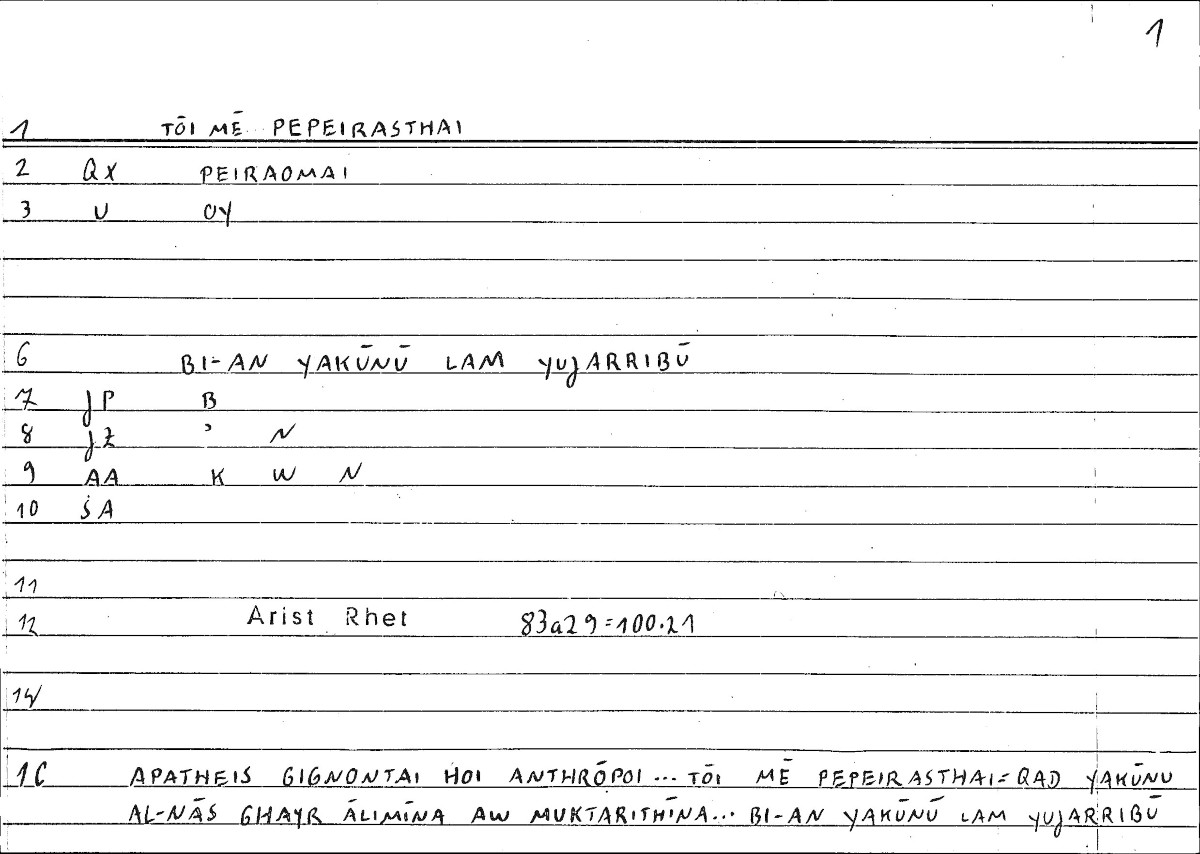 1
1 TŌI MĒ ... PEPEIRASTHAI
2 QX PEIRAOMAI
3 U OY
6 BI-AN YAKŪNŪ LAM YUJARRIBŪ
7 JP B
8 JŻ ʾ N
9 AA K W N
10 ṠA
11
12 Arist Rhet 83a29=100.21
14
16 APATHEIS GIGNONTAI HOI ANTHRŌPOI... TŌI MĒ PEPEIRASTHAI=QAD YAKŪNU
AL-NĀS GHAYR ĀLIMĪNA AW MUKTARITHĪNA... BI-AN YAKŪNŪ LAM YUJARRIBŪ